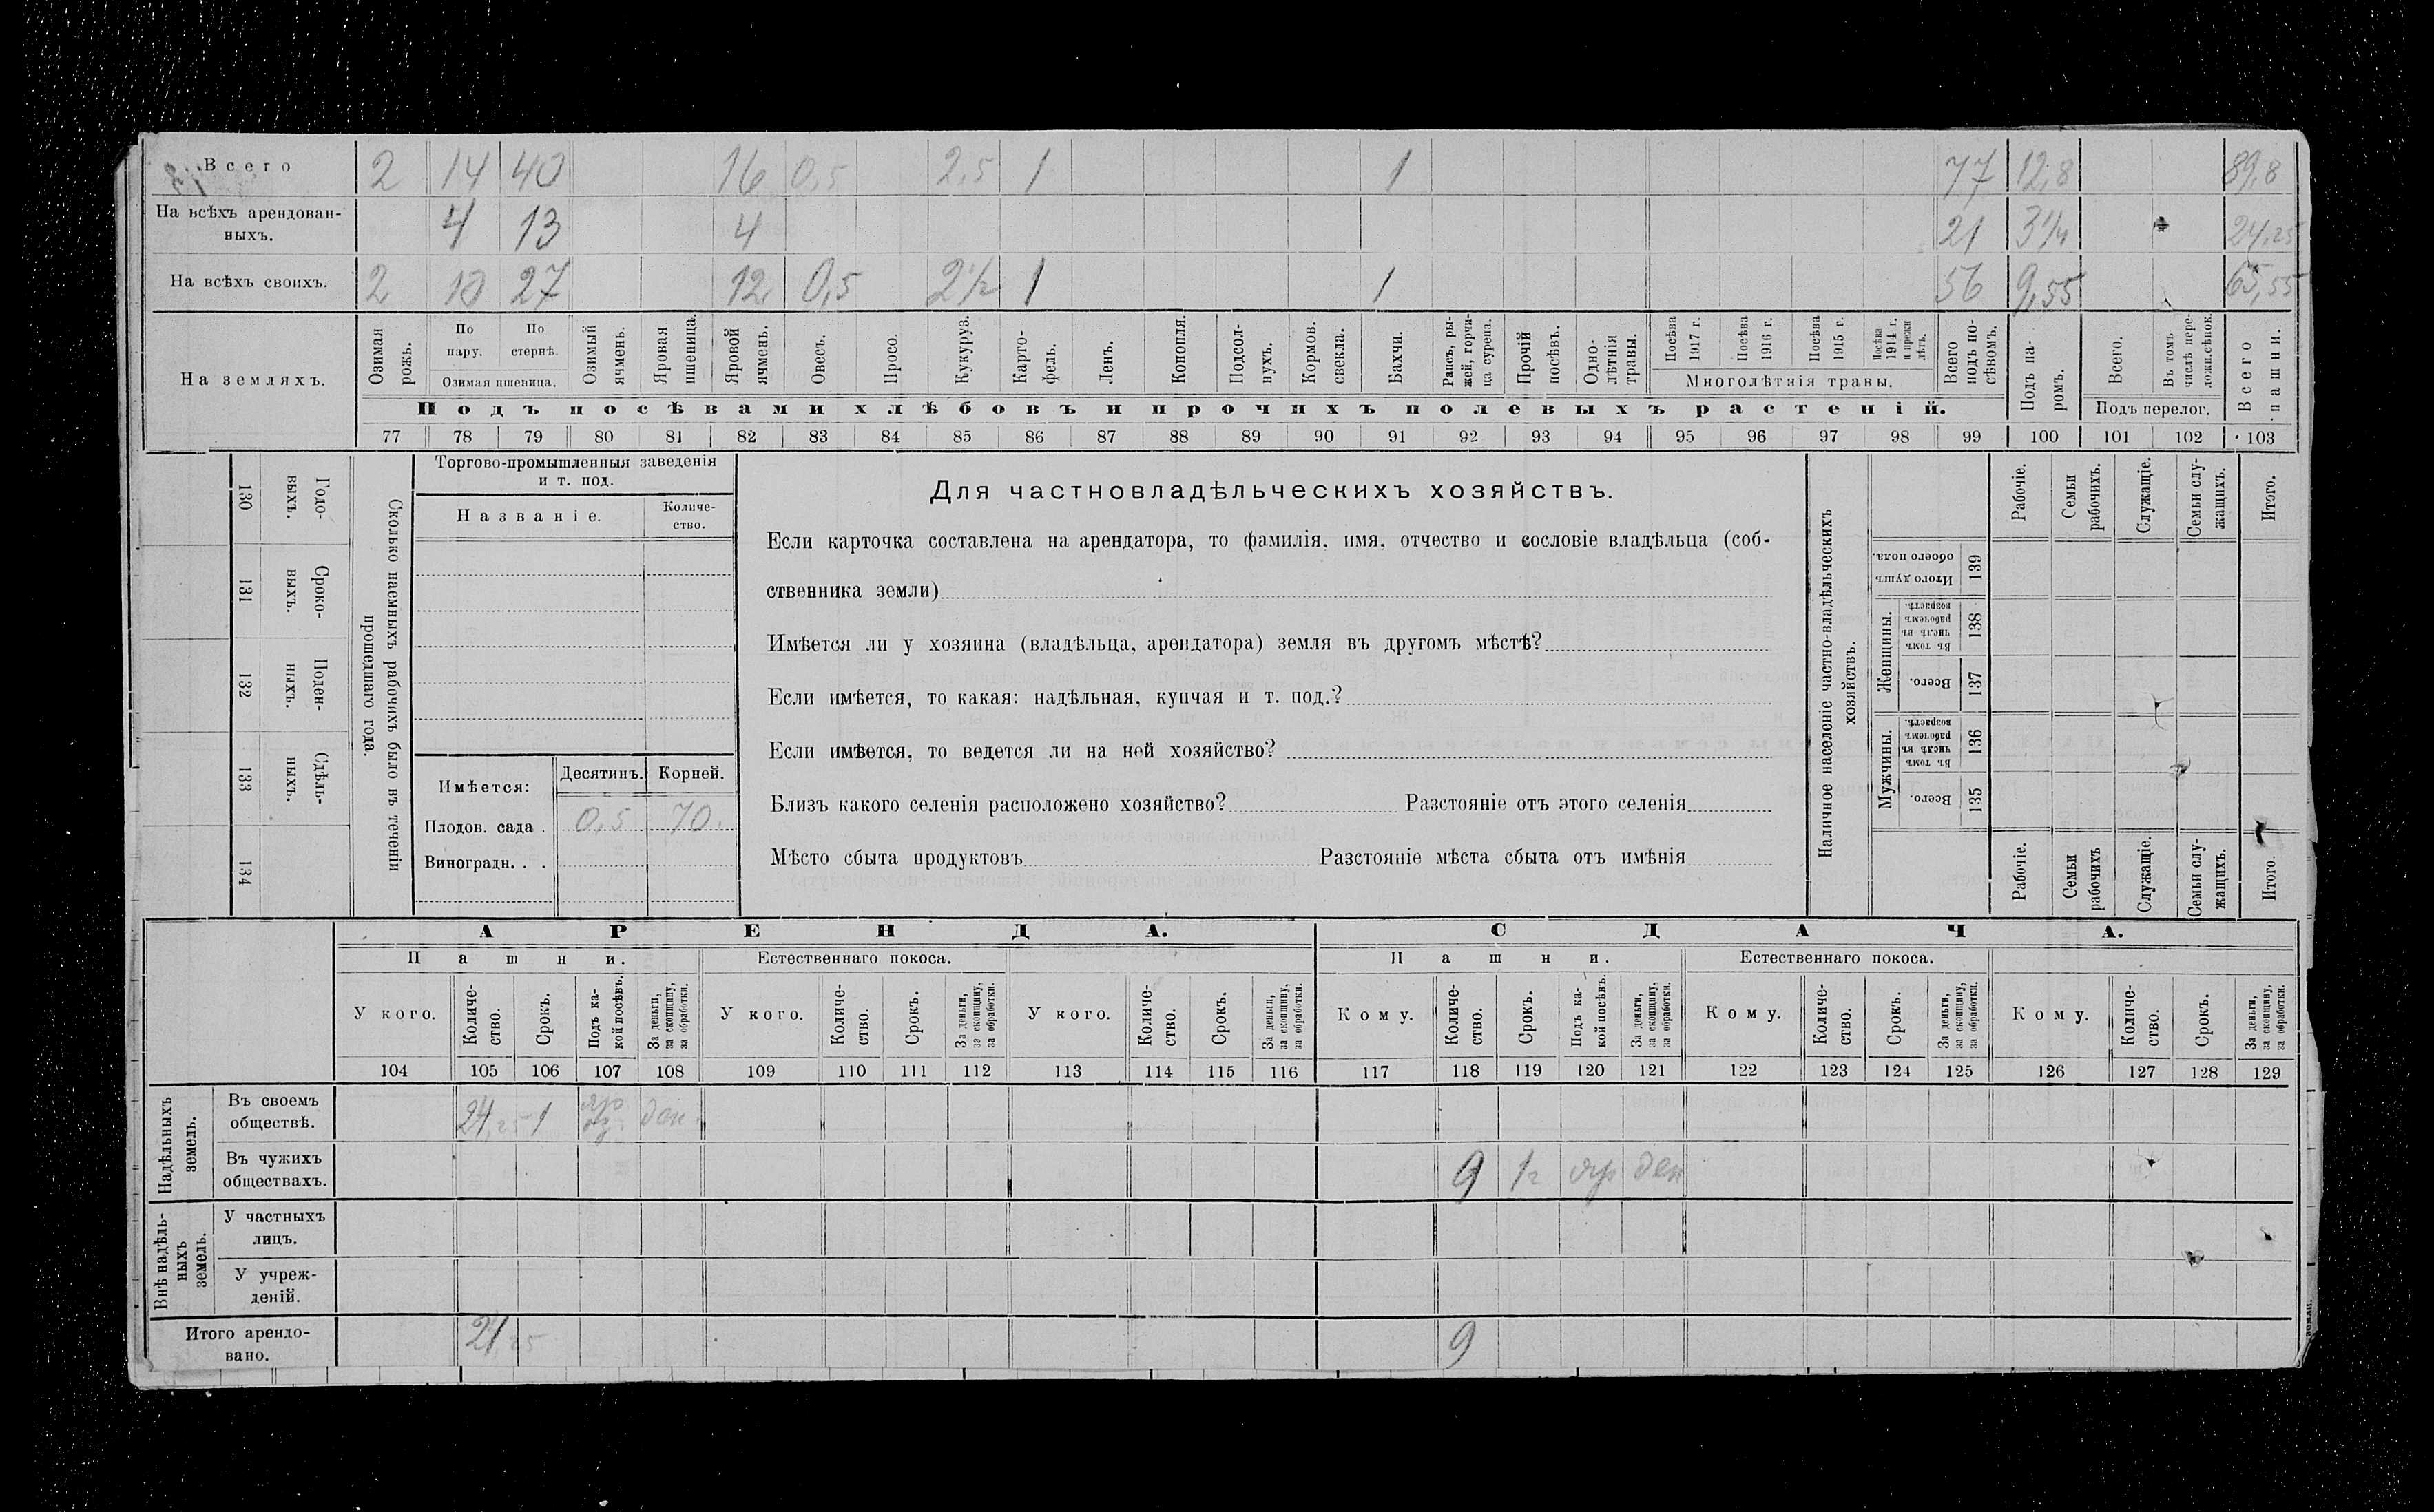 Всего 2 14 40 16 0,5 2,5 1 1 77 12,8 89,8
На всѣхъ арендован-
ныхъ. 4 13 4 21 3¼ 24,25
На всѣхъ своихъ. 2 10 27 12 0,5 2½ 1 1 56 9,55 65,55
На земляхъ.
Озимая рожь.
По пару.
По стернѣ.
Озимая пшеница.
Озимый ячмень.
Яровая пшеница.
Яровой ячмень.
Овесъ.
Просо.
Кукуруз.
Карто-
фель.
Ленъ.
Конопля.
Подсол-
нухъ.
Кормов.
свекла.
Бахчи.
Рапсъ, ры-
жей, горчи-
ца сурепа.
Прочій
посѣвъ.
Одно-
лѣтнія
травы.
Посѣва
1917 г.
Посѣва
1916 г.
Посѣва
1915 г.
Посѣва
1914 г.
и прежн
лѣтъ.
Многолѣтнія травы.
Всего
подъ по-
сѣвомъ.
Подъ па-
ромъ.
Всего.
Въ томъ
числѣ пере-
лож.сѣнок.
Подъ перелог.
Всего
пашни.
Подъ посѣвами хлѣбовъ и прочихъ полевыхъ растеній.
77 78 79 80 81 82 83 84 85 86 87 88 89 90 91 92 93 94 95 96 97 98 99 100 101 102 103
130 Годо-
выхъ.
131 Сроко-
выхъ.
132 Поден-
ныхъ.
133 Сдѣль-
ныхъ.
134
Сколько наемныхъ рабочихъ было въ теченіи
прошедшаго года.
Торгово-промышленныя заведенія
и т. под.
Названіе.
Количе-
ство.
Имѣется: Десятинъ. Корней.
Плодов. сада . 0,5 70.
Виноградн. . .
Для частновладѣльческихъ хозяйствъ.
Если карточка составлена на арендатора, то фамилія, имя, отчество и сословіе владѣльца (соб-
ственника земли)
Имѣется ли у хозяина (владѣльца, арендатора) земля въ другомъ мѣстѣ?
Если имѣется, то какая: надѣльная, купчая и т. под.?
Если имѣется, то ведется ли на ней хозяйство?
Близъ какого селенія расположено хозяйство? Разстояніе отъ этого селенія
Мѣсто сбыта продуктовъ Разстояніе мѣста сбыта отъ имѣнія
Наличное населеніе частно-владѣльческихъ
хозяйствъ.
Рабочіе.
Семьи
рабочихъ.
Служащіе.
Семьи слу-
жащихъ.
Итого.
Итого душ
обоего пола.
139
Женщины.
Въ томъ
числѣ въ
рабочемъ
возрастѣ.
138
Всего.
137
Мужчины.
Въ томъ
числѣ въ
рабочемъ
возрастѣ.
136
Всего.
135
Рабочіе.
Семьи
рабочихъ
Служащіе.
Семьи слу-
жащихъ.
Итого.
АРЕНДА. СДАЧА.
Пашни. Естественнаго покоса. Пашни. Естественнаго покоса.
У кого.
Количе-
ство.
Срокъ.
Подъ ка-
кой посѣвъ.
За деньги,
за скопщину,
за обработки.
У кого.
Количе-
ство.
Срокъ.
За деньги,
за скопщину,
за обработки.
У кого.
Количе-
ство.
Срокъ.
За деньги,
за скопщину,
за обработки.
Кому.
Количе-
ство.
Срокъ.
Подъ ка-
кой посѣвъ.
За деньги,
за скопщину,
за обработки.
Кому.
Количе-
ство.
Срокъ.
За деньги,
за скопщину,
за обработки.
Кому.
Количе-
ство.
Срокъ.
За деньги,
за скопщину,
за обработки.
104 105 106 107 108 109 110 111 112 113 114 115 116 117 118 119 120 121 122 123 124 125 126 127 128 129
Надѣльныхъ
земель.
Въ своемъ
обществѣ. 24,25 1 яр оз. ден.
Въ чужихъ
обществахъ. 9 1г яр ден
Внѣ надѣль-
ныхъ
земель.
У частныхъ
лицъ.
У учреж-
деній.
Итого арендо-
вано. 24,25 9